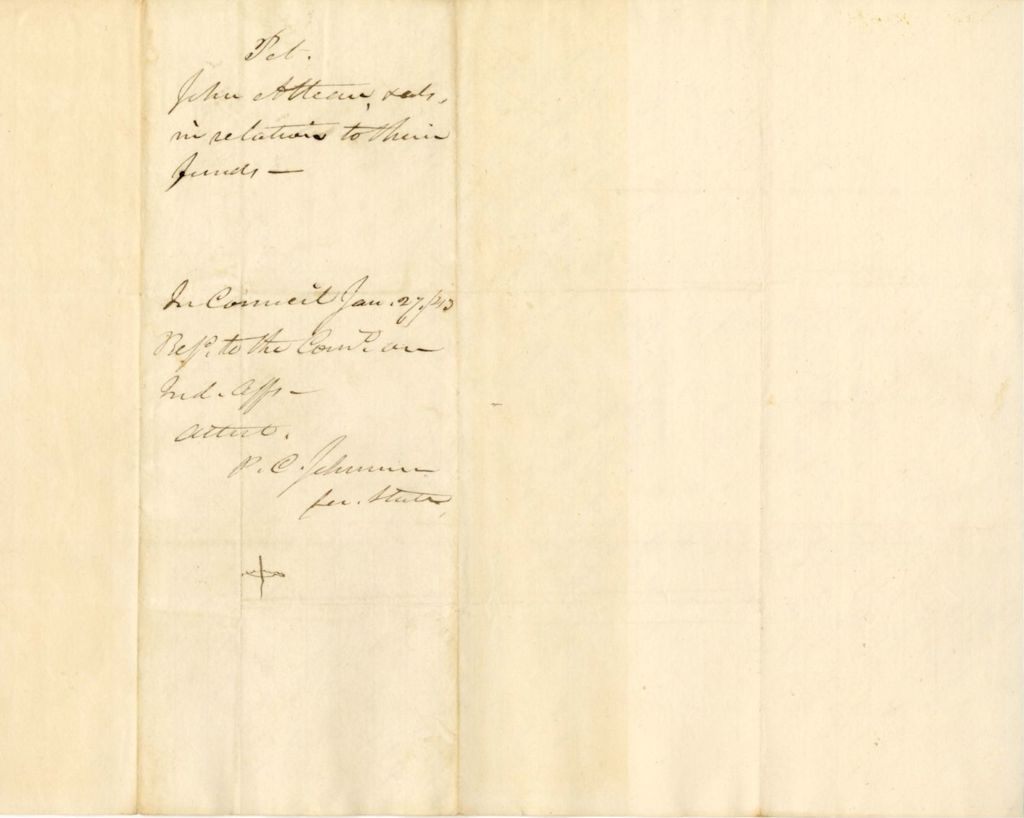 Pet.
John Attean, & als,
in relation to their
funds —
In Council Jan. 27, /43
Refd. to the Come. on
Ind. Affs —
Attest.
P. C. Johnson
Sec. State,